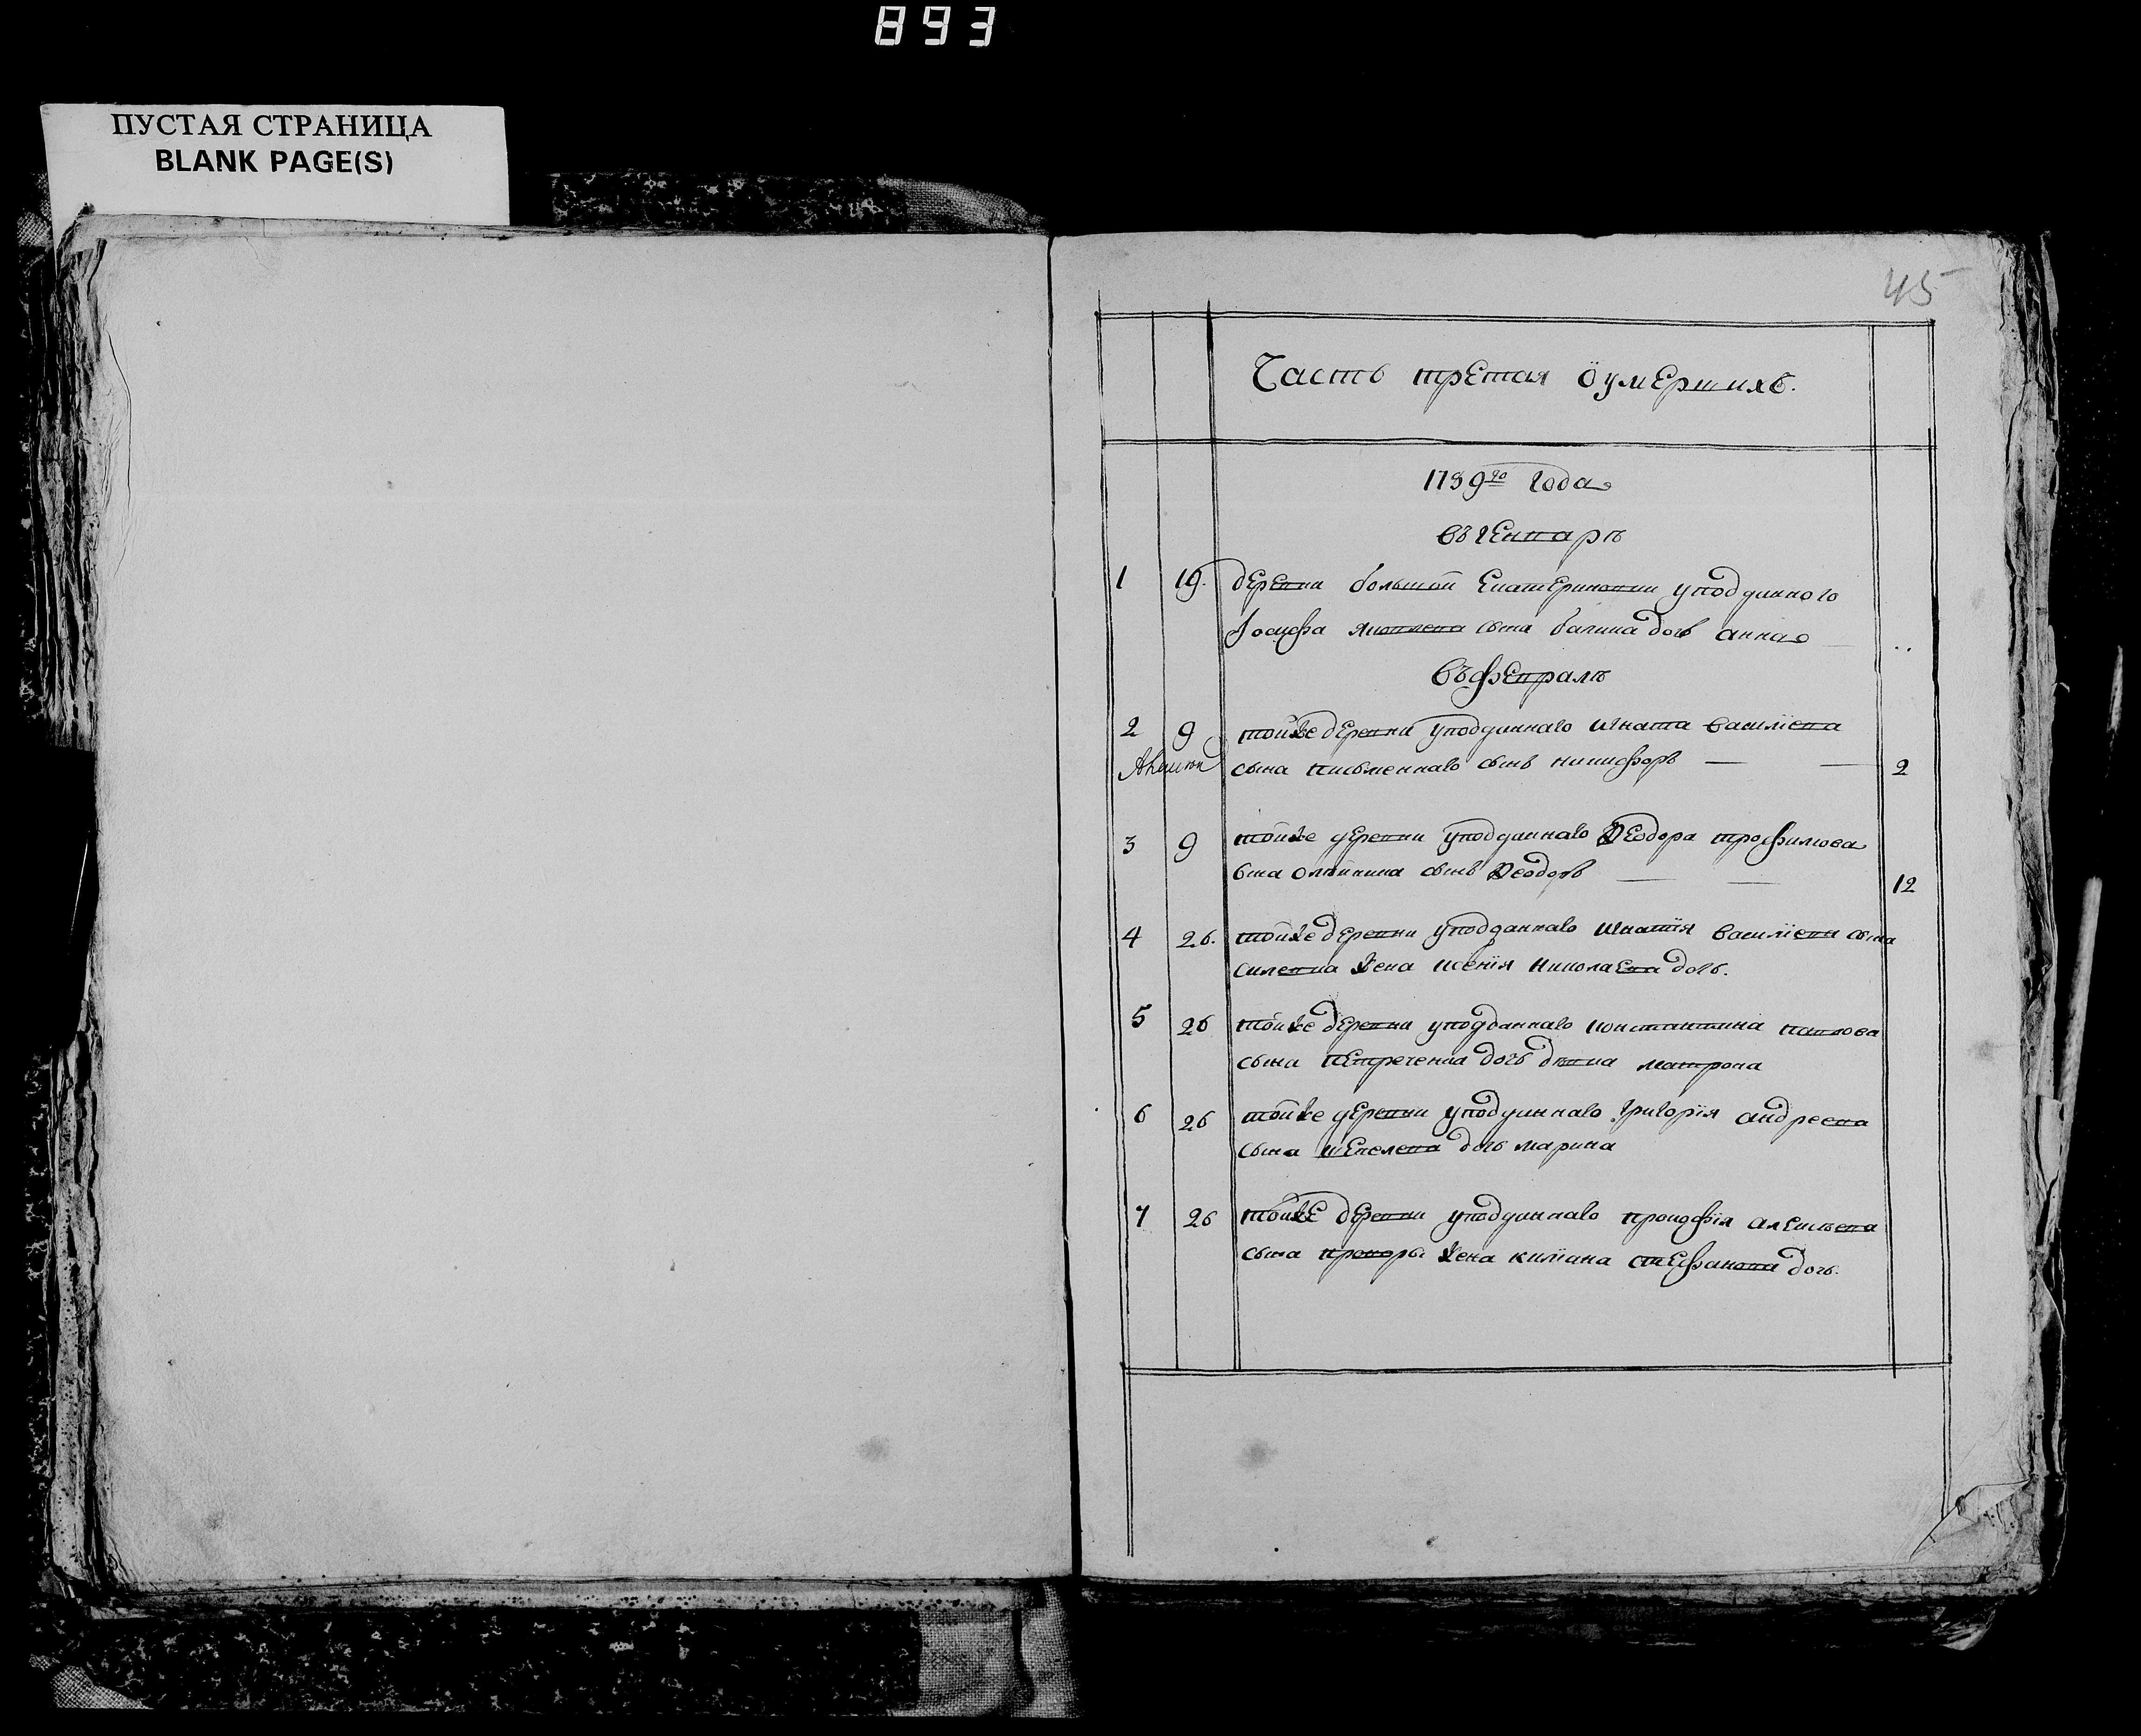 893
ПУСТАЯ СТРАНИЦА
BLANK PAGE(S)
45
Часть третая о умершихъ.
1789го года
въ генварѣ
1 19. деревни большой Екатериновки у подданного
Іосифа Яковлева сына дочь анна
въ февралѣ
2 9 тойже деревни у подданнаго Игната василіева
сына писменнаго сынъ никифоръ — — 2
3 9 тойже деревни у подданнаго Ѳеодора трофимова
сына олѣйника сынъ Ѳеодоръ — — 12
4 26. тойже деревни у подданнаго Игнатія василіева сына
жена ксенія николаева дочь.
5 26 тойже деревни у подданнаго константина павлова
сына петреченка дочь дѣвка матрона
6 26 тойже деревни у подданнаго григорія андреева
сына дочь марина
7 26 тойже деревни у подданнаго прокофія алексѣева
сына жена киліана стефанова дочь.